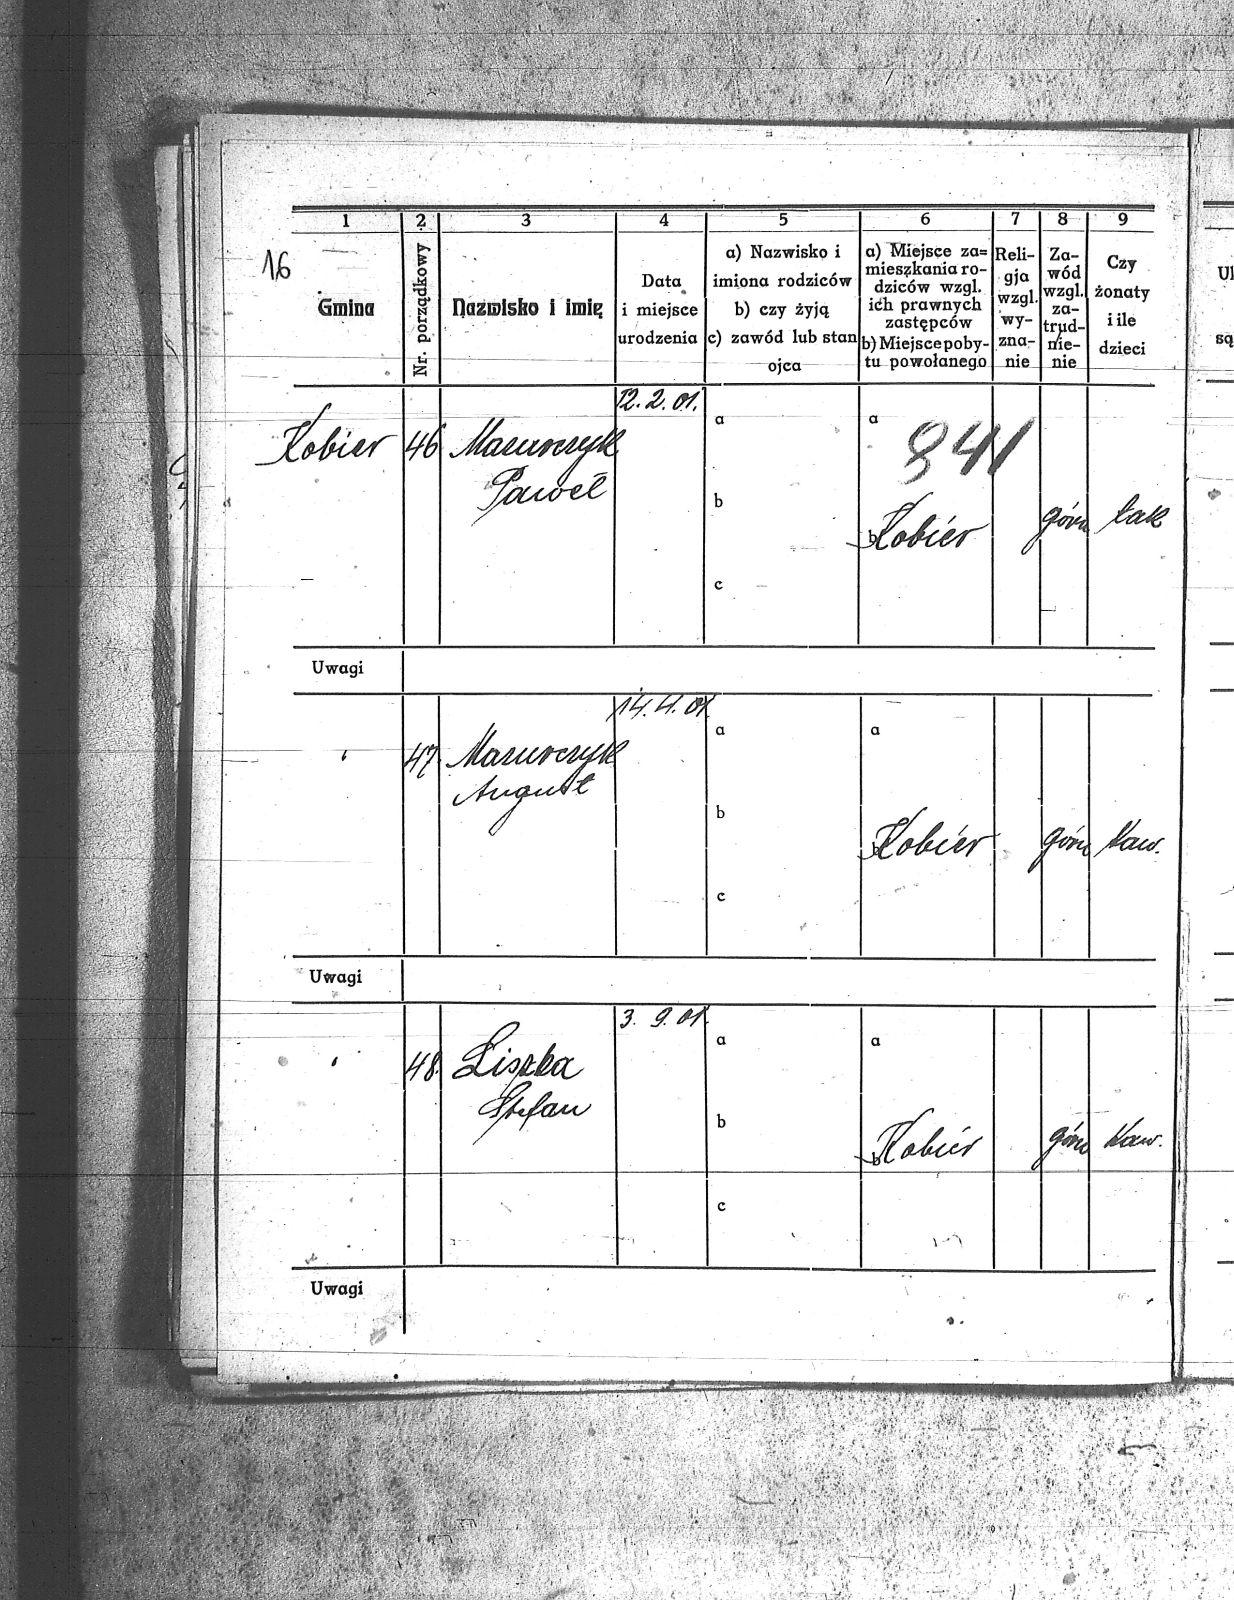 16
1 2 3 4 5 6 7 8 9
Gmina
Nr. porządkowy
Nazwisko i imię
Data
i miejsce
urodzenia
a) Nazwisko i
imiona rodziców
b) czy żyją
c) zawód lub stan
ojca
a) Miejsce za=
mieszkania ro-
dziców wzgl.
ich prawnych
zastępców
b) Miejsce poby-
tu powołanego
Reli-
gja
wzgl.
wy-
zna-
nie
Za-
wód
wzgl.
za-
trud-
nie-
nie
Czy
żonaty
i ile
dzieci
12.2.01.
a a
841
Kobier 46 Mazurczyk
Paweł
b
b Kobiór górn tak
c
Uwagi
14.4.01.
a a
47. Mazurczyk
August
b
b Kobiór górn kaw.
c
Uwagi
3. 9. 01.
a a
48. Liszka
Stefan
b
b Kobiór górn kaw.
c
Uwagi
Ul
są